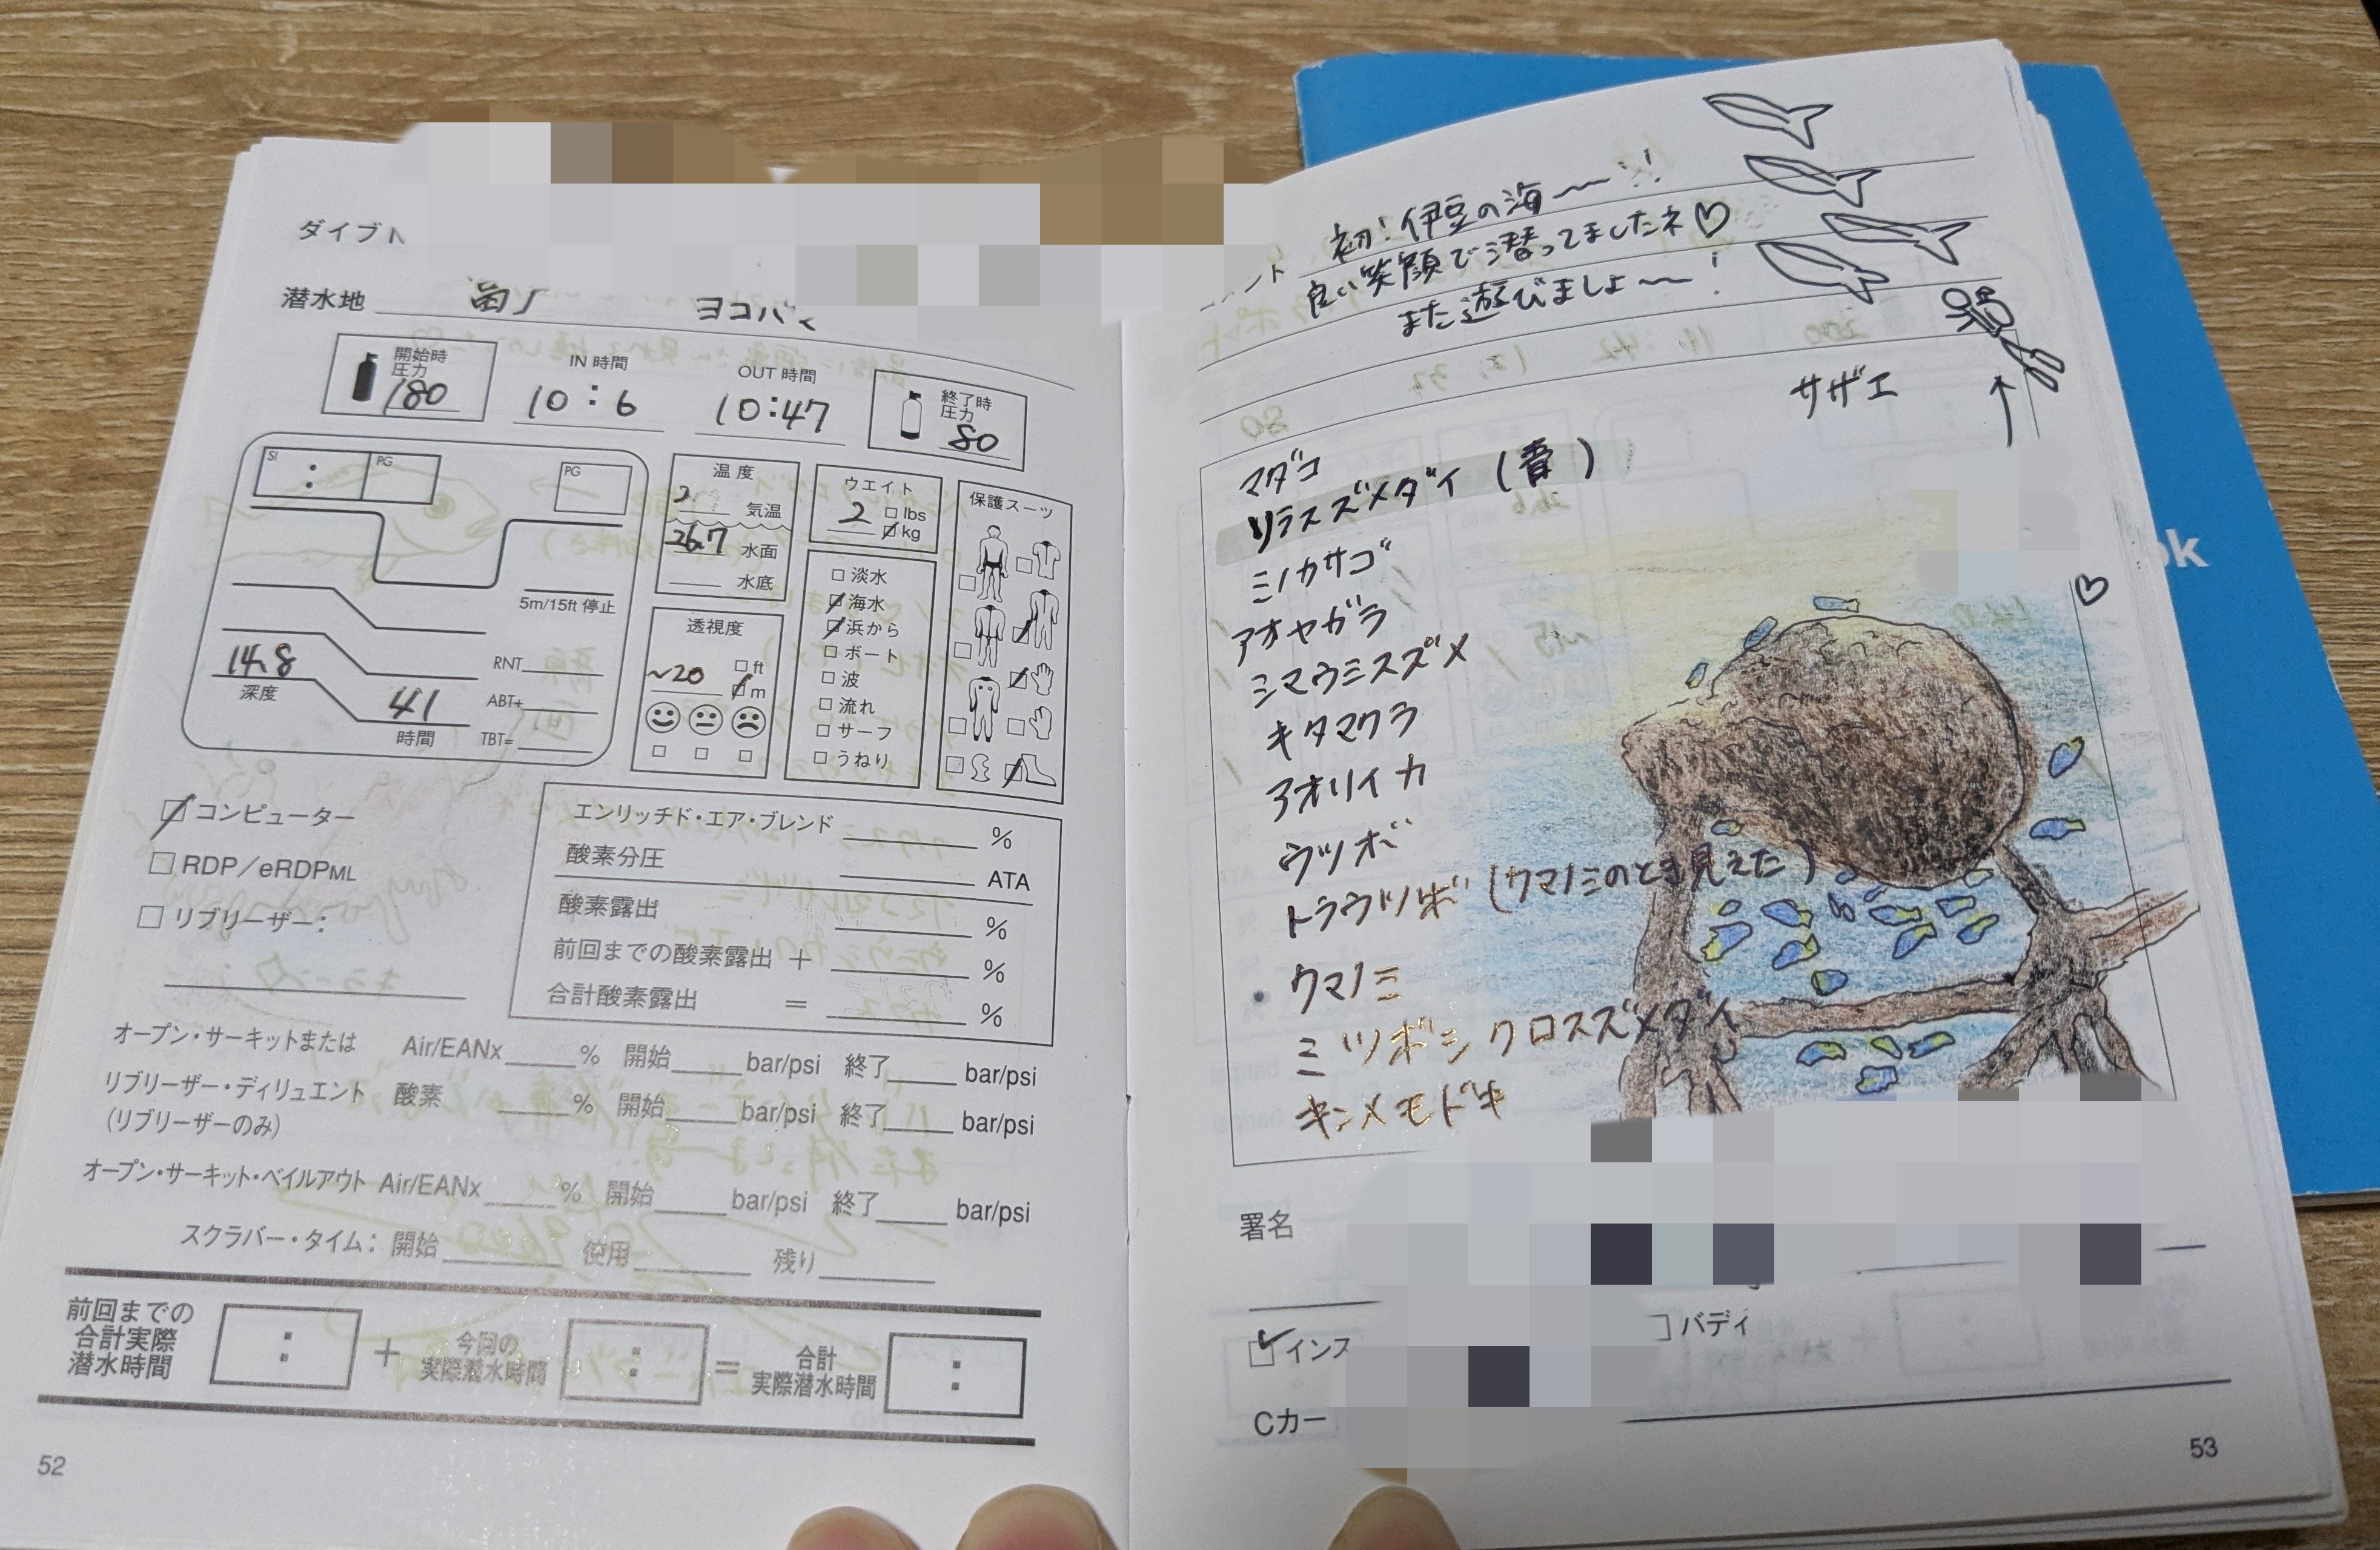 ダイブ
潜水地
開始時
圧力
180
IN 時間
10:6
OUT 時間
10:47
終了時
圧力
80
SI
:
PG
PG
5m/15ft 停止
14.8
深度
41
時間
RNT
ABT+
TBT=
温度
気温
26.7 水面
水底
透視度
~20
ft
m
ウエイト
2
lbs
kg
淡水
海水
浜から
ボート
波
流れ
サーフ
うねり
保護スーツ
コンピューター
RDP/eRDPML
リブリーザー:
エンリッチド・エア・ブレンド %
酸素分圧 ATA
酸素露出 %
前回までの酸素露出 + %
合計酸素露出 = %
オープン・サーキットまたは Air/EANx % 開始 bar/psi 終了 bar/psi
リブリーザー・ディリュエント 酸素 % 開始 bar/psi 終了 bar/psi
(リブリーザーのみ)
オープン・サーキット・ベイルアウト Air/EANx % 開始 bar/psi 終了 bar/psi
スクラバー・タイム: 開始 使用 残り
前回までの
合計実際
潜水時間
:
+
今回の
実際潜水時間
:
=
合計
実際潜水時間
:
52
初!伊豆の海〜!!
良い笑顔で潜ってましたネ♡
また遊びましょ〜!
サザエ
マダコ
ソラスズメダイ(青)
ミノカサゴ
アオヤガラ
シマウミスズメ
キタマクラ
アオリイカ
ウツボ
トラウツボ(クマノミのとき見えた)
クマノミ
ミツボシクロスズメダイ
キンメモドキ
署名
インス
バディ
Cカー
53
ok